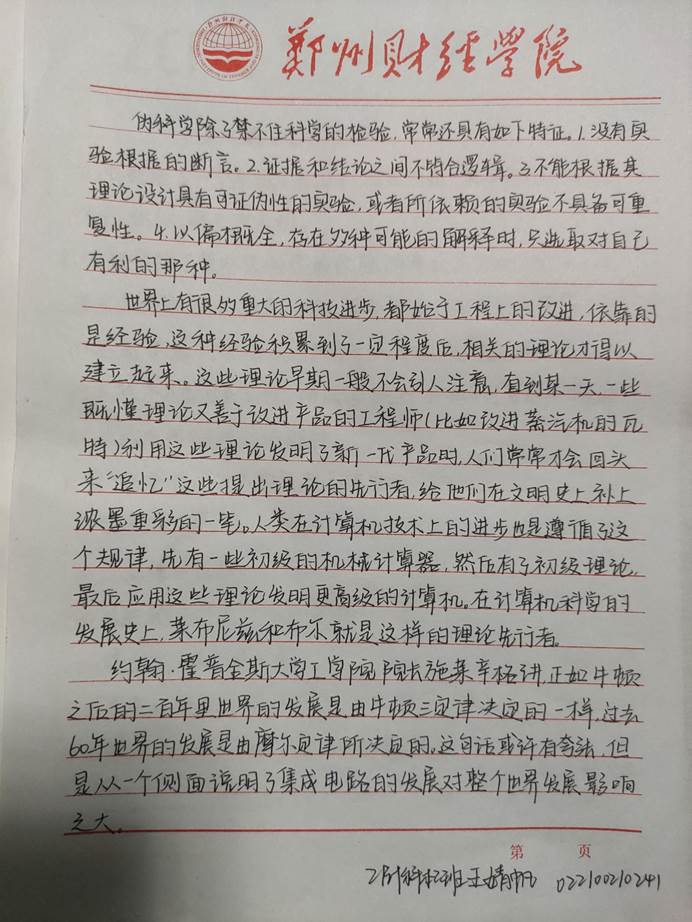 郑州财经学院
伪科学除了禁不住科学的检验，常常还具有如下特征。1.没有实
验根据的断言。2.证据和结论之间不符合逻辑。3.不能根据其
理论设计具有可证伪性的实验，或者所依赖的实验不具备可重
复性。4.以偏概全，存在多种可能的解释时，只选取对自己
有利的那种。
世界上有很多重大的科技进步，都始于工程上的改进，依靠的
是经验，这种经验积累到了一定程度后，相关的理论才得以
建立起来。这些理论早期一般不会引人注意，直到某一天，一些
既懂理论又善于改进产品的工程师（比如改进蒸汽机的瓦
特）利用这些理论发明了新一代产品时，人们常常才会回头
来“追忆”这些提出理论的先行者，给他们在文明史上补上
浓墨重彩的一笔。人类在计算机技术上的进步也是遵循了这
个规律，先有一些初级的机械计算器，然后有了初级理论，
最后应用这些理论发明更高级的计算机。在计算机科学的
发展史上，莱布尼兹和布尔就是这样的理论先行者。
约翰·霍普金斯大学工学院院长施莱辛格讲，正如牛顿
之后的二百年里世界的发展是由牛顿三定律决定的一样，过去
60年世界的发展是由摩尔定律所决定的。这句话或许有夸张，但
是从一个侧面说明了集成电路的发展对整个世界发展影响
之大。
第 页
02100210241